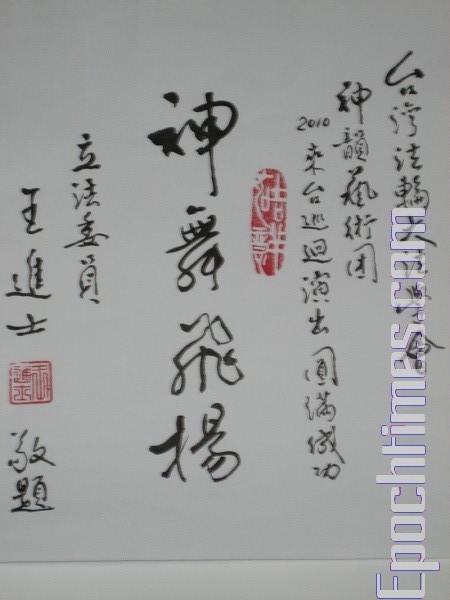 台灣法輪大法學會
神韻藝術團
2010來台巡迴演出 圓滿成功
神舞飛揚
立法委員
王進士
敬題
Epochtimes.com